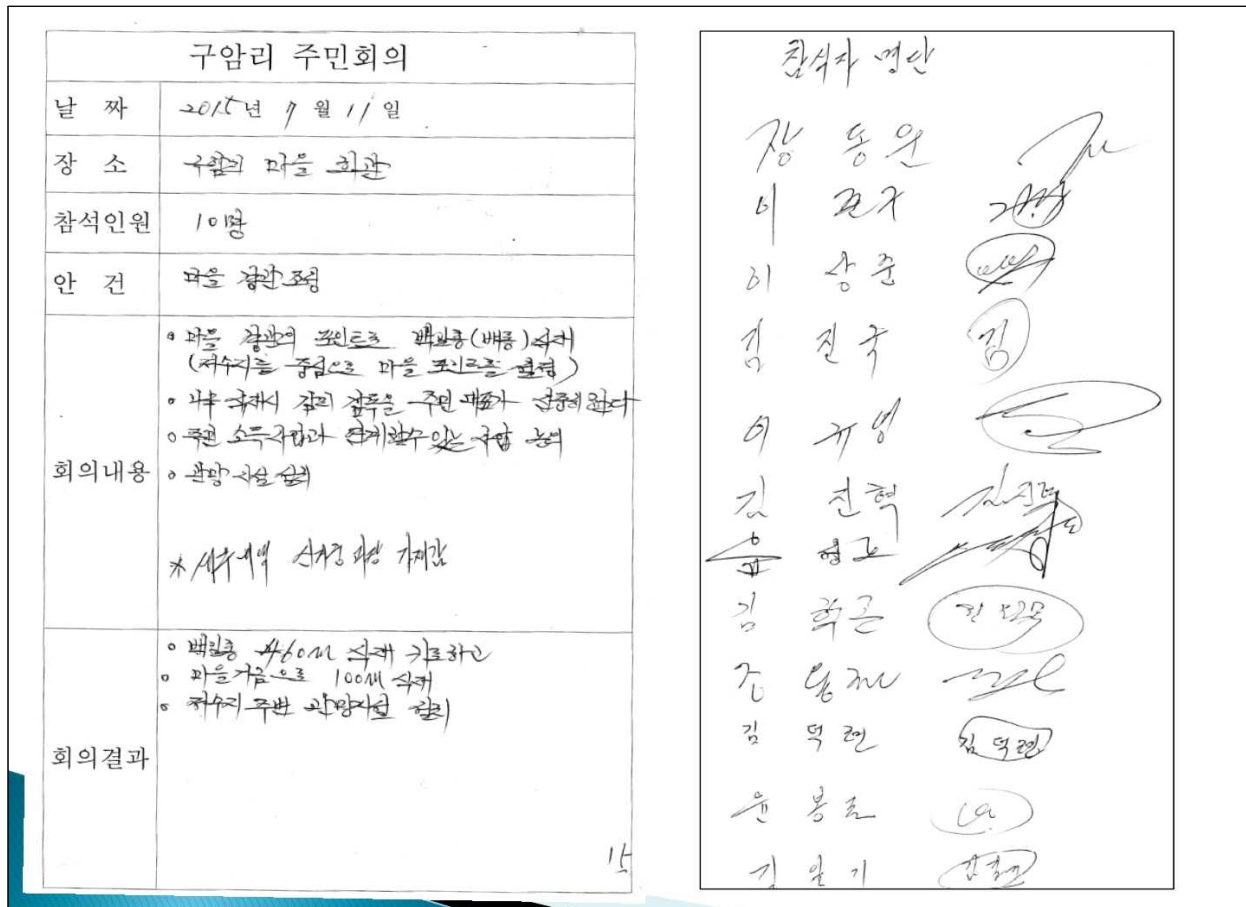 구암리 주민회의
날 짜 2015년 7월 11일
장 소 구암리 마을 회관
참석인원 10명
안 건 마을 경관 조성
회의내용
◦ 마을 경관의 포인트로 백일홍(배롱)식재
(저수지를 중심으로 마을 포인트를 설정)
◦ 나무 식재시 감독을 주민 대표가
◦ 주민 소득사업과 연계 할수 있는 사업 논의
◦ 관망 시설 설치
*
회의결과
◦ 백일홍 식재 키로하고
◦ 마을기금으로 100 식재
◦ 저수지 주변 관망시설 설치
15
참석자 명단
장 동 원
이
이 상 준
김 진 국 김
이 규 영
김 진 혁 김진혁
윤
김 학 근
조
김 덕 련 김덕련
윤 봉 로
김 일 기